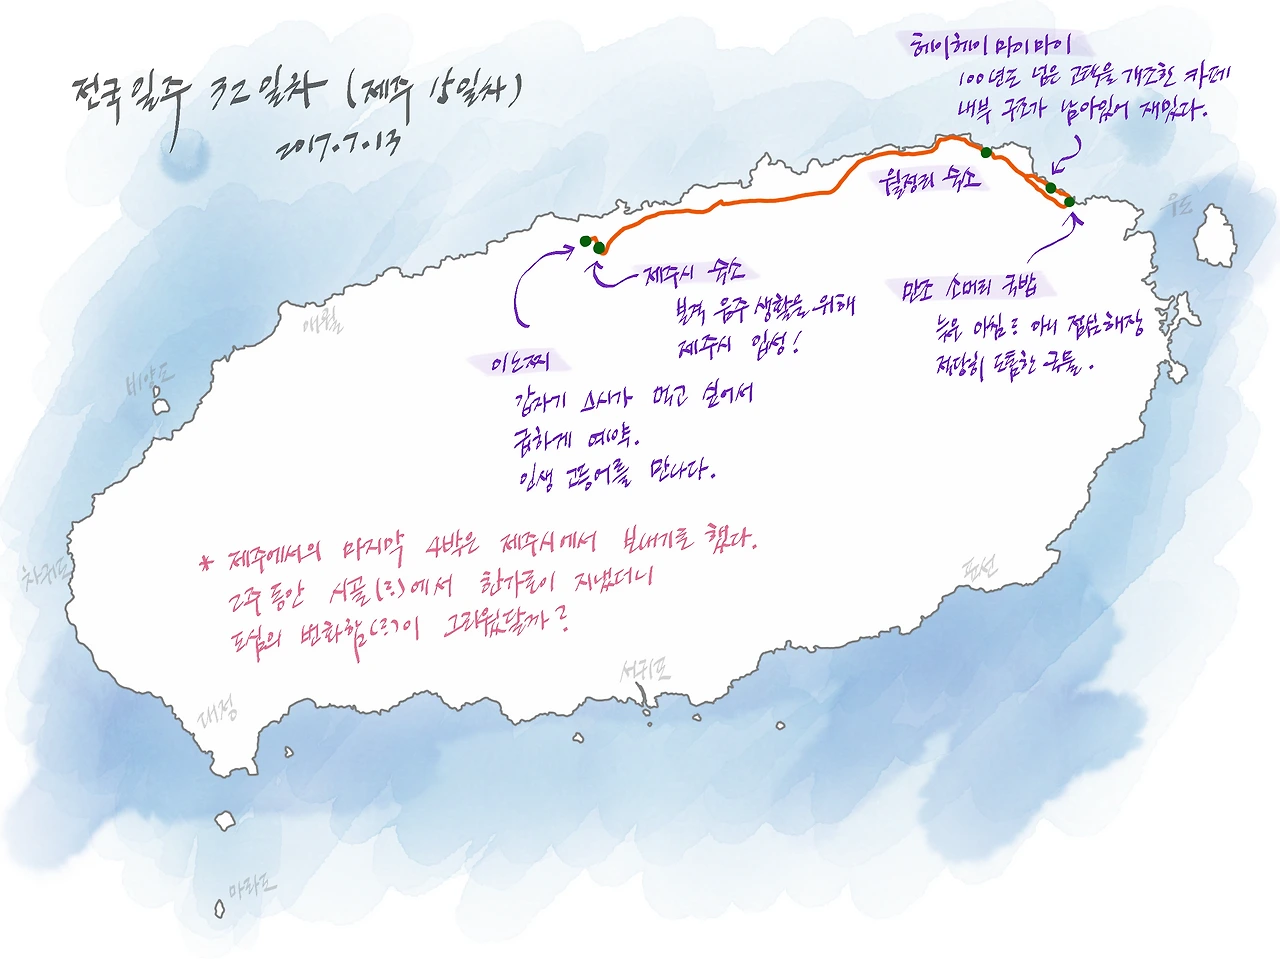 전국일주 32일차 (제주 15일차)
2017.7.13
헤이헤이 마이마이
100년도 넘은 고택을 개조한 카페
내부 구조가 남아있어 재밌다.
월정리 숙소
우도
제주시 숙소
본격 음주 생활을 위해
제주시 입성!
만조 소머리 국밥
늦은 아침ㅎ 아니 점심해장
적당히 도톰한 국물.
애월
비양도
이노찌
갑자기 스시가 먹고 싶어서
급하게 예약.
인생 고등어를 만나다.
* 제주에서의 마지막 4박은 제주시에서 보내기로 했다.
2주 동안 시골(ㅎ)에서 한가로이 지냈더니
도심의 번화함(ㅎ)이 그리웠달까?
차귀도
표선
서귀포
대정
마라도